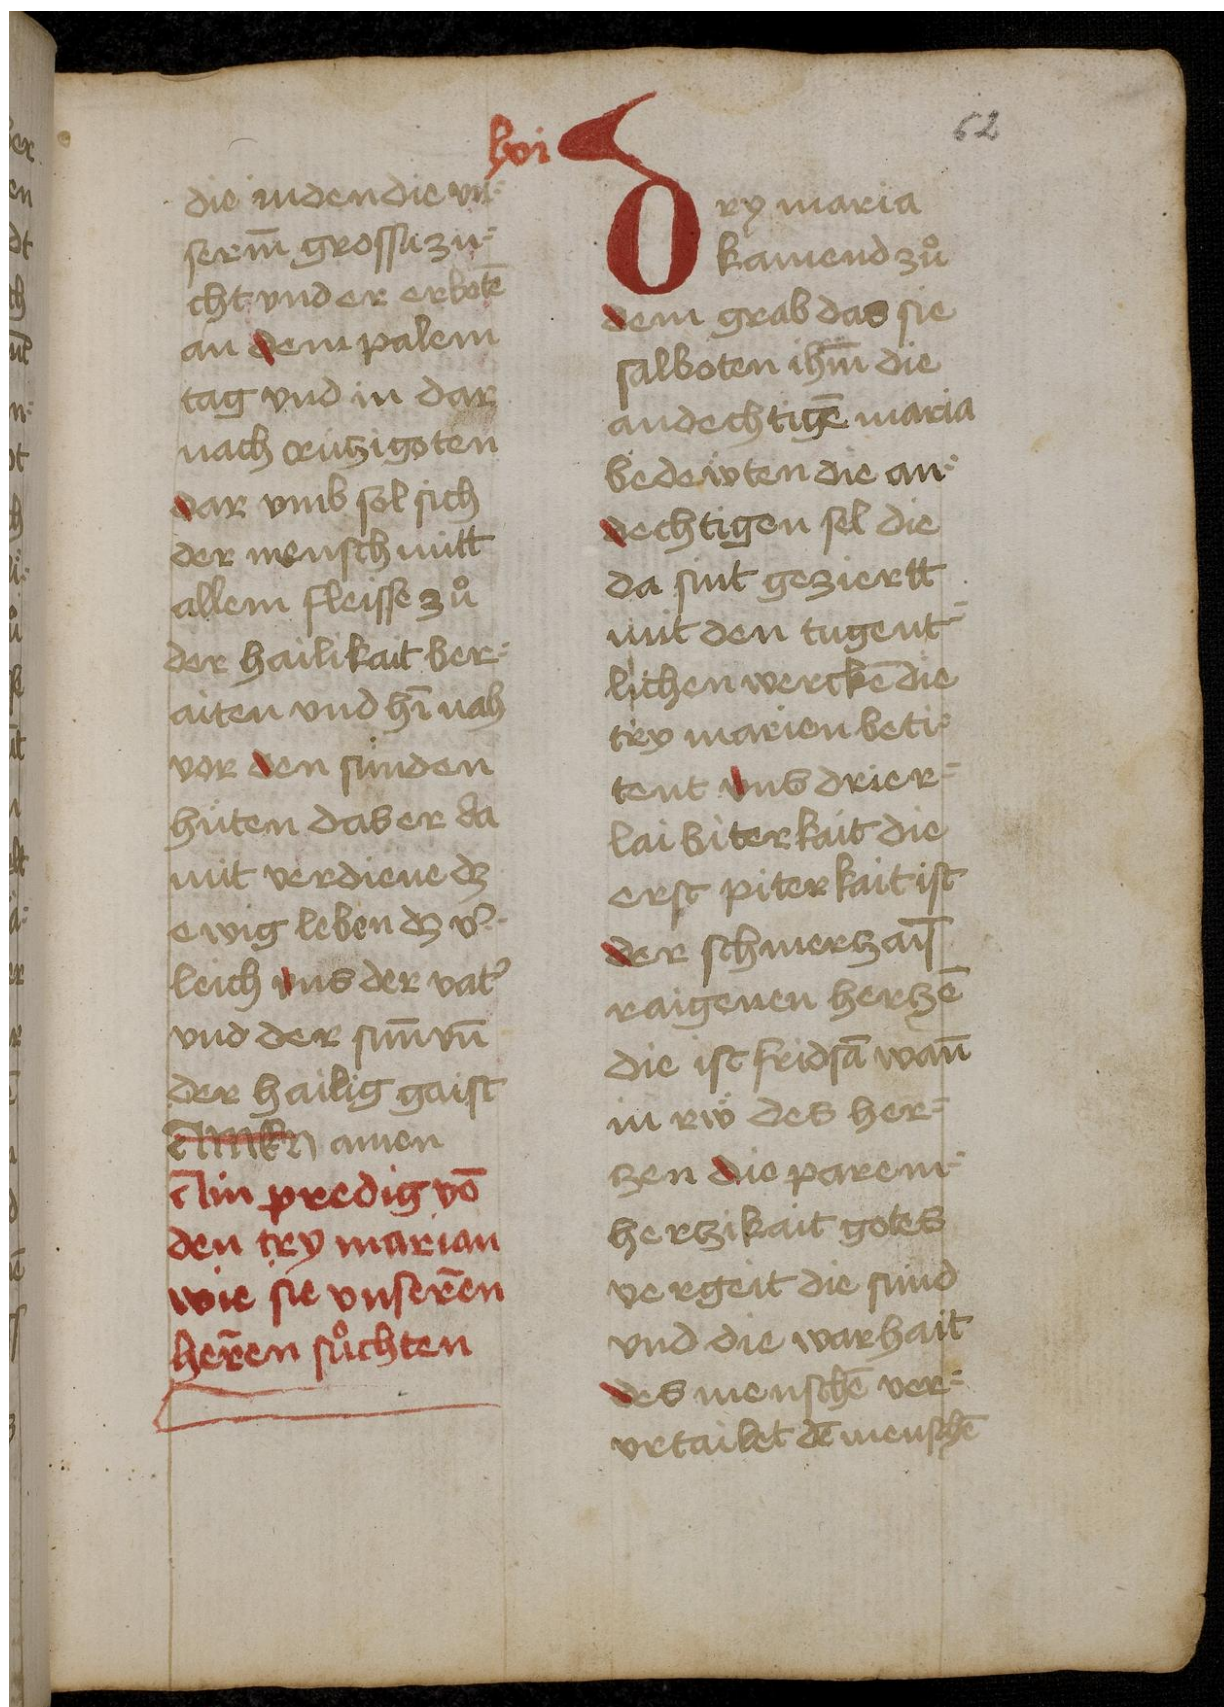 lxvi
62
die iuden die vn⸗
serm̄ grossu zu⸗
cht vnd er erbotē
an dem palem
tag vnd in dar
nach crützigoten
dar vmb sol sich
der mensch mitt
allem fleisse zů
der hailikait ber⸗
aiten vnd hī nah
vor den sünden
hüten das er da
mit verdiene dz
ewig leben dz v⸗
leich vns der vat
vnd der sun̄ vn̄
der hailig gaist
Amen amen
Ain predig vō
den try marian
wie sie vnserēn
herēn sůchten
Dry maria
kamend zů
dem grab das sie
salboten ihm̄ die
andechtigē maria
bedewten die an⸗
dechtigen sel die
da sint geziertt
mit den tugent⸗
lichen werckē die
try marien beti⸗
tent vns drier⸗
lai biterkait die
erst piterkait ist
der schmertz ains
raigenen hertzē
die ist fridsā wan̄
in rẘ des her⸗
tzen die parem⸗
hertzikait gotes
vergeit die sünd
vnd die warhait
des menschē ver⸗
vrtailet dē menschē